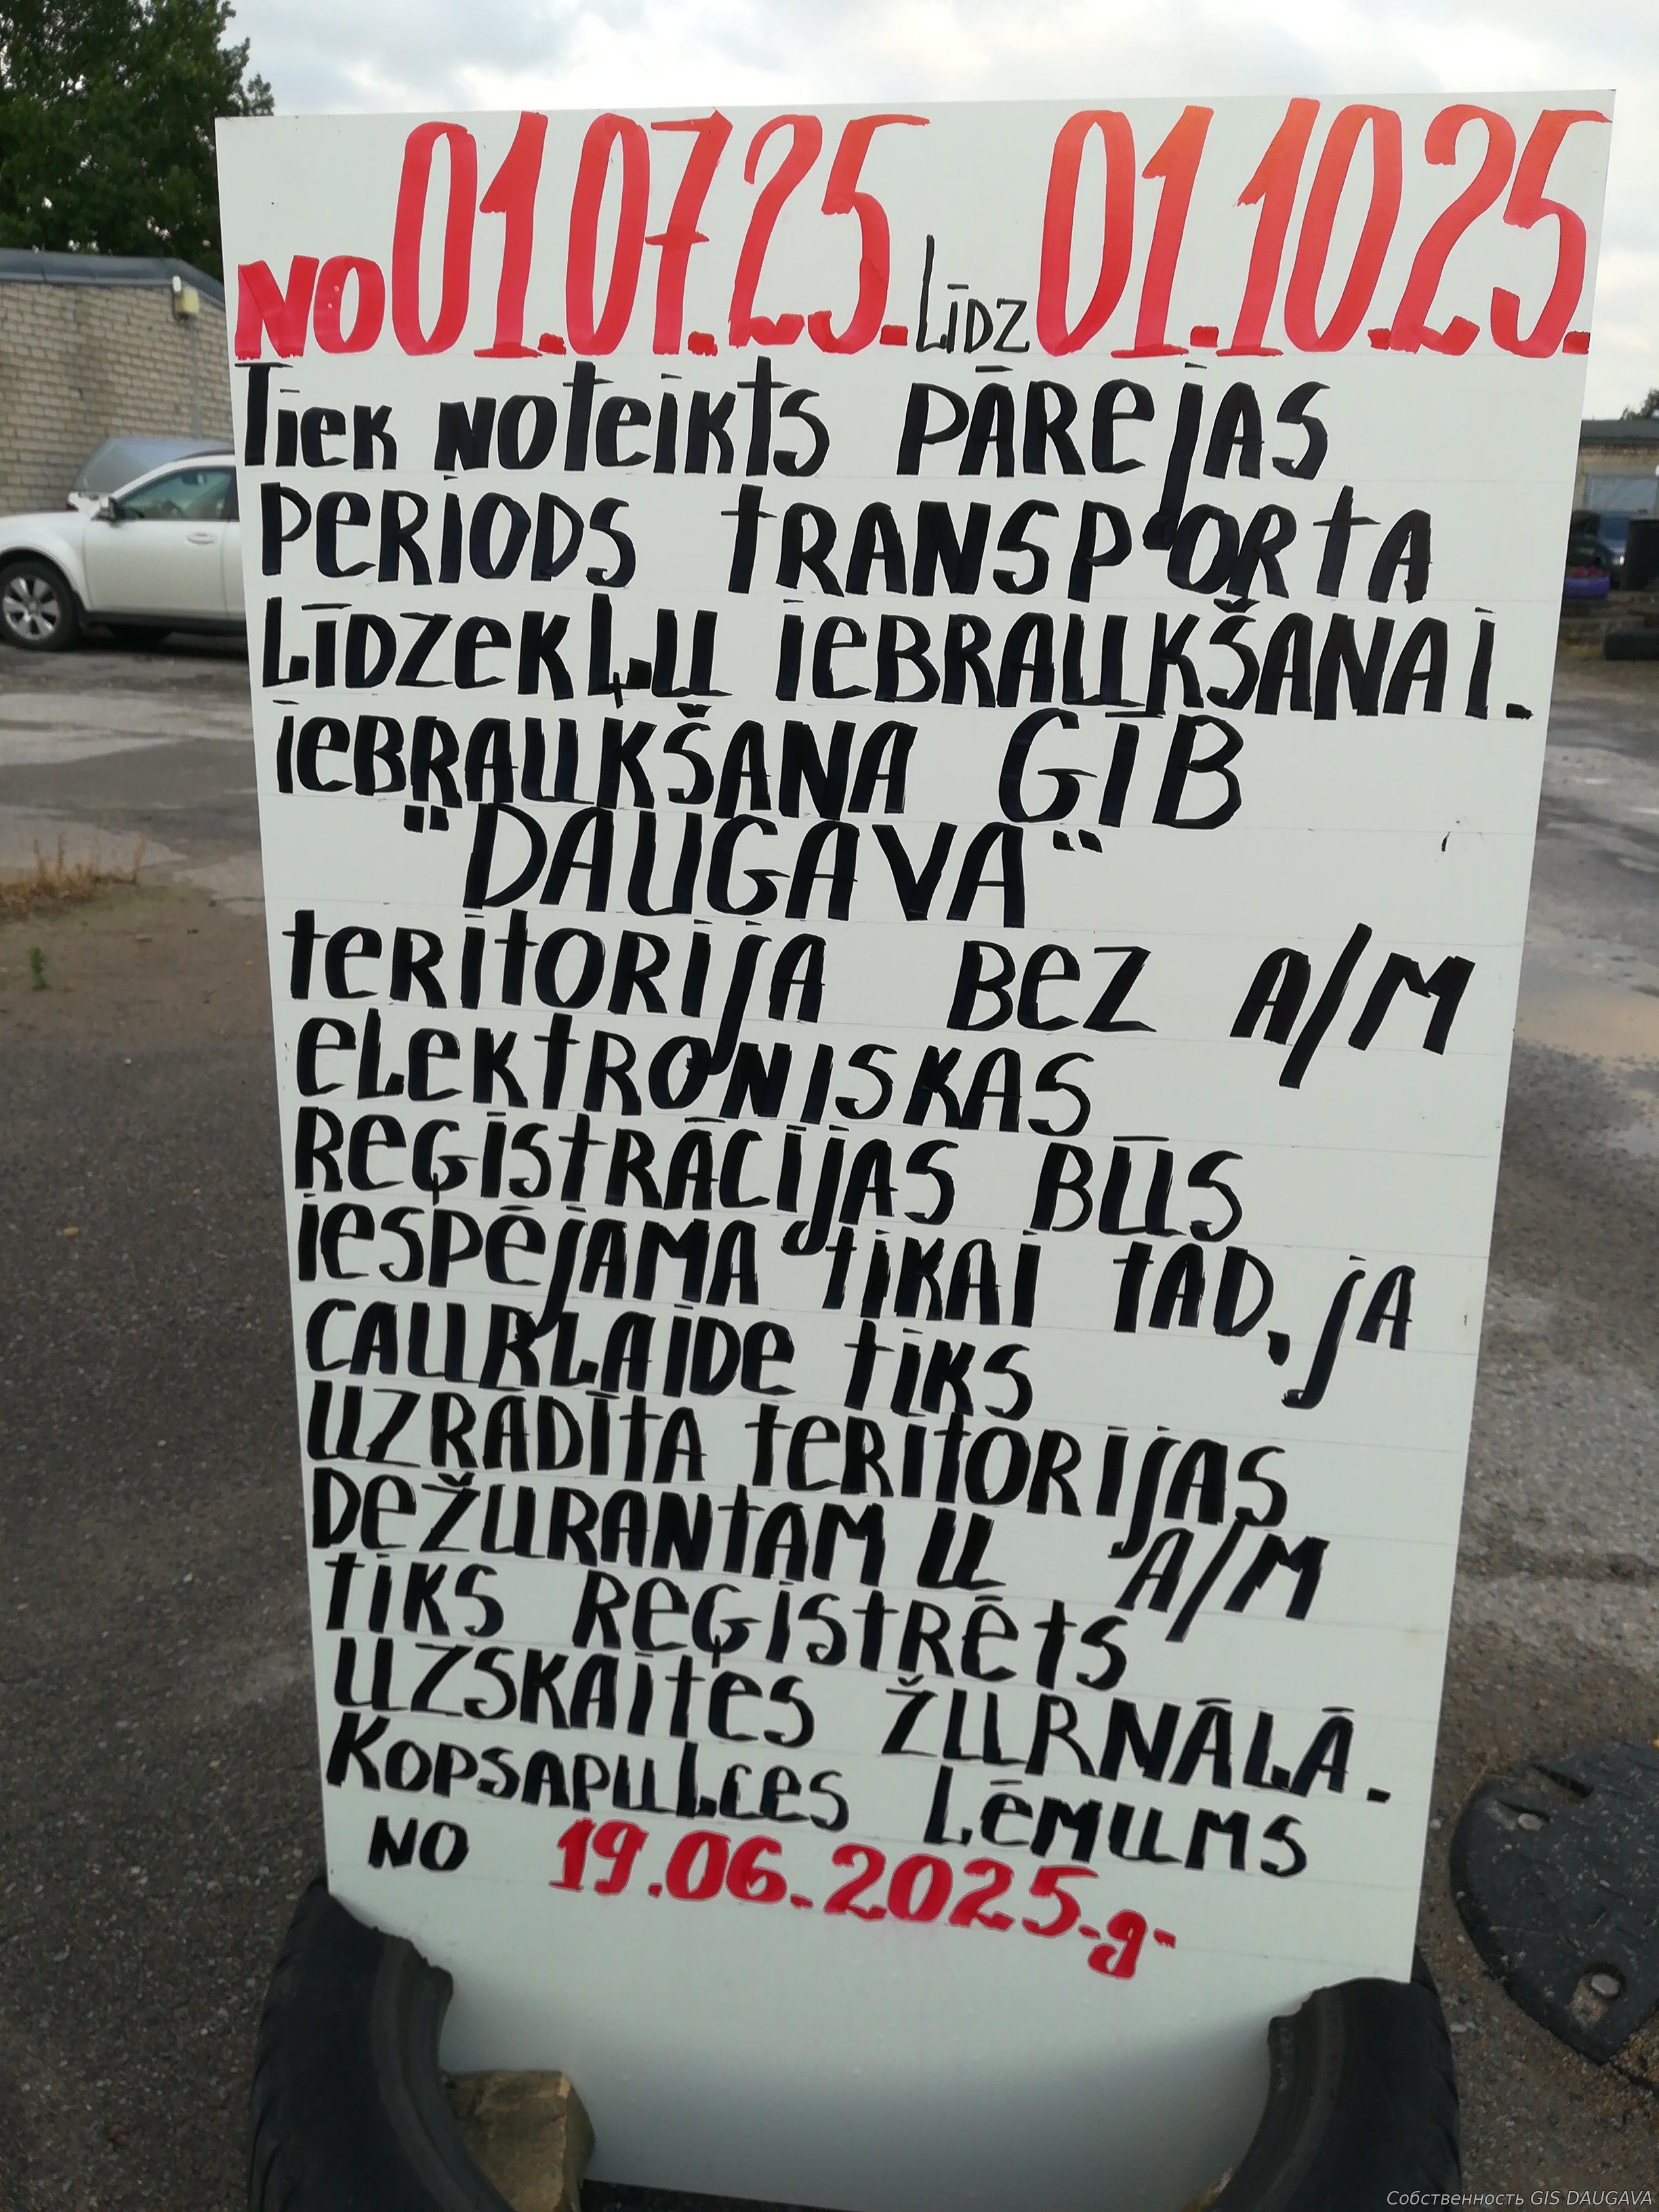 NO 01.07.25. LĪDZ 01.10.25.
Tiek NOteikts PĀRejAS
PERIODS tRANSPORtA
LĪDZeKĻU ieBRAUKŠANAI.
ieBRAUKŠANA GIB
"DAUGAVA"
teRitORijA BeZ A/M
eLektRONISKAS
ReĢIStRĀCIJAS BŪS
iesPējAMA tiKAi tAD, jA
CAURLAIDe tiks
UZRĀDĪtA teRitORijAS
DeŽURANtAM U A/M
tiks ReĢistRēts
UZSKAites ŽURNĀLĀ.
KOPSAPULCes LēMUMS
NO 19.06.2025.g.
Собственность GIS DAUGAVA